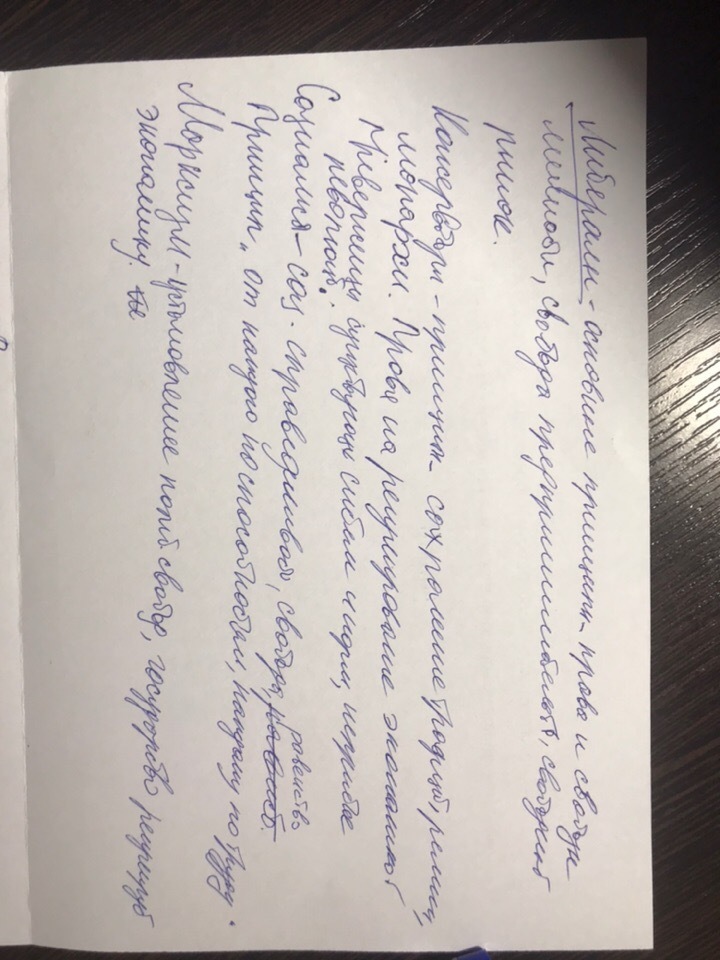 Либерали - основные принципы права и свободы
личности, свобода предпринимательств, свободный
рынок.
Консерватори - принципы сохранение традиций, религии,
монархии. Право на регулирование экономикой
Приверженцы существующ систем и норм, неприятие
револющ.
Социализм - соц. справедливость, свобода, равенство
Принцип "от каждого по способностям, каждому по труду".
Марксизм - установление полит свобод, государство регулирует
экономику.